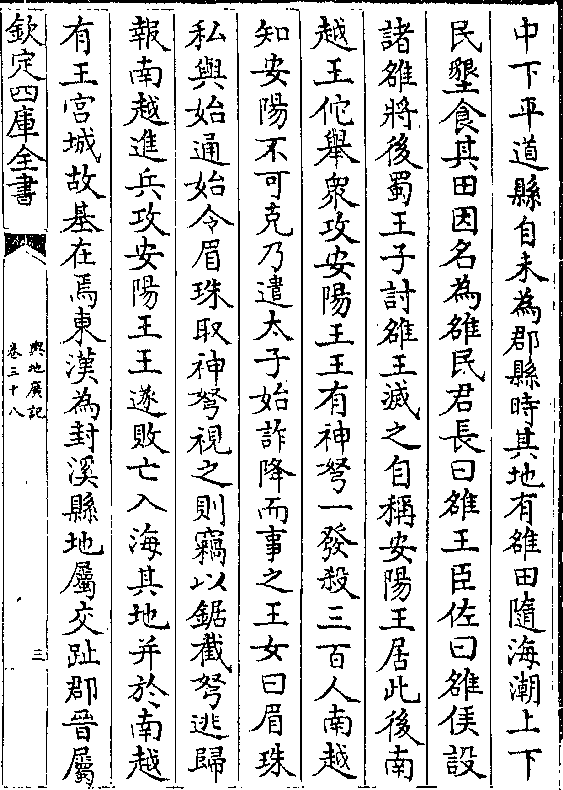 中下平道縣自未為郡縣時其地有雒田隨海潮上下
民墾食其田因名為雒民君長曰雒王臣佐曰雒侯設
諸雒將後蜀王子討雒王滅之自稱安陽王居此後南
越王佗舉衆攻安陽王王有神弩一發殺三百人南越
知安陽不可克乃遣太子始詐降而事之王女曰眉珠
私與始通始令眉珠取神弩視之則竊以鋸截弩逃歸
報南越進兵攻安陽王王遂敗亡入海其地并於南越
有王宮城故基在焉東漢為封溪縣地屬交趾郡晉屬
欽定四庫全書
輿地廣記
卷三十八
三